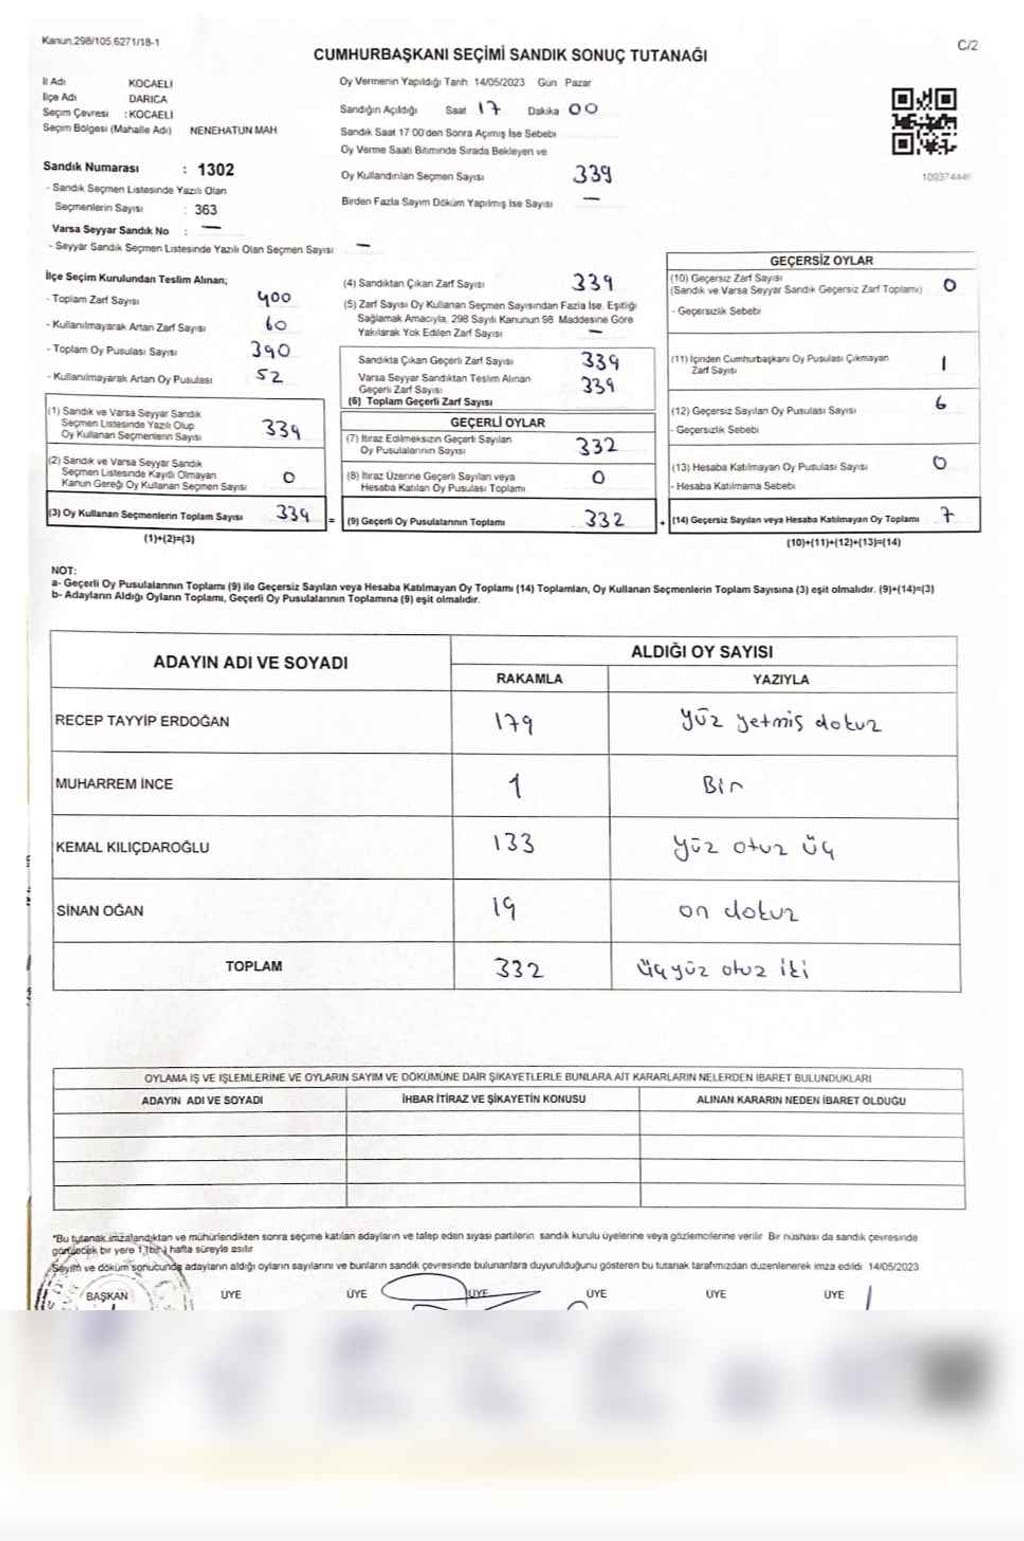 Kanun.298/105,6271/18-1
C/2
CUMHURBAŞKANI SEÇİMİ SANDIK SONUÇ TUTANAĞI
İl Adı KOCAELİ
İlçe Adı DARICA
Seçim Çevresi : KOCAELİ
Seçim Bölgesi (Mahalle Adı) NENEHATUN MAH
Sandık Numarası : 1302
- Sandık Seçmen Listesinde Yazılı Olan
Seçmenlerin Sayısı : 363
Varsa Seyyar Sandık No : —
- Seyyar Sandık Seçmen Listesinde Yazılı Olan Seçmen Sayısı —
Oy Vermenin Yapıldığı Tarih 14/05/2023 Gün Pazar
Sandığın Açıldığı Saat 17 Dakika 00
Sandık Saat 17 00'den Sonra Açımış İse Sebebi
Oy Verme Saati Bitiminde Sırada Bekleyen ve
Oy Kullandırılan Seçmen Sayısı 339
Birden Fazla Sayım Döküm Yapılmış İse Sayısı —
109374446
İlçe Seçim Kurulundan Teslim Alınan;
- Toplam Zarf Sayısı 400
- Kullanılmayarak Artan Zarf Sayısı 60
- Toplam Oy Pusulası Sayısı 390
- Kullanılmayarak Artan Oy Pusulası 52
(1) Sandık ve Varsa Seyyar Sandık
Seçmen Listesinde Yazılı Olup
Oy Kullanan Seçmenlerin Sayısı 339
(2) Sandık ve Varsa Seyyar Sandık
Seçmen Listesinde Kayıtlı Olmayan
Kanun Gereği Oy Kullanan Seçmen Sayısı 0
(3) Oy Kullanan Seçmenlerin Toplam Sayısı 339 =
(1)+(2)=(3)
(4) Sandıktan Çıkan Zarf Sayısı 339
(5) Zarf Sayısı Oy Kullanan Seçmen Sayısından Fazla İse, Eşitliği
Sağlamak Amacıyla, 298 Sayılı Kanunun 98 Maddesine Göre
Yakılarak Yok Edilen Zarf Sayısı —
Sandıkta Çıkan Geçerli Zarf Sayısı 339
Varsa Seyyar Sandıktan Teslim Alınan
Geçerli Zarf Sayısı 339
(6) Toplam Geçerli Zarf Sayısı
GEÇERLİ OYLAR
(7) İtiraz Edilmeksizin Geçerli Sayılan
Oy Pusulalarının Sayısı 332
(8) İtiraz Üzerine Geçerli Sayılan veya
Hesaba Katılan Oy Pusulası Toplamı 0
(9) Geçerli Oy Pusulalarının Toplamı 332 +
GEÇERSİZ OYLAR
(10) Geçersiz Zarf Sayısı
(Sandık ve Varsa Seyyar Sandık Geçersiz Zarf Toplamı) 0
- Geçersizlik Sebebi
(11) İçinden Cumhurbaşkanı Oy Pusulası Çıkmayan
Zarf Sayısı 1
(12) Geçersiz Sayılan Oy Pusulası Sayısı 6
- Geçersizlik Sebebi
(13) Hesaba Katılmayan Oy Pusulası Sayısı 0
- Hesaba Katılmama Sebebi
(14) Geçersiz Sayılan veya Hesaba Katılmayan Oy Toplamı 7
(10)+(11)+(12)+(13)=(14)
NOT:
a- Geçerli Oy Pusulalarının Toplamı (9) ile Geçersiz Sayılan veya Hesaba Katılmayan Oy Toplamı (14) Toplamları, Oy Kullanan Seçmenlerin Toplam Sayısına (3) eşit olmalıdır. (9)+(14)=(3)
b- Adayların Aldığı Oyların Toplamı, Geçerli Oy Pusulalarının Toplamına (9) eşit olmalıdır.
ADAYIN ADI VE SOYADI ALDIĞI OY SAYISI
RAKAMLA YAZIYLA
RECEP TAYYİP ERDOĞAN 179 yüz yetmiş dokuz
MUHARREM İNCE 1 Bir
KEMAL KILIÇDAROĞLU 133 yüz otuz üç
SİNAN OĞAN 19 on dokuz
TOPLAM 332 üçyüz otuz iki
OYLAMA İŞ VE İŞLEMLERİNE VE OYLARIN SAYIM VE DÖKÜMÜNE DAİR ŞİKAYETLERLE BUNLARA AİT KARARLARIN NELERDEN İBARET BULUNDUKLARI
ADAYIN ADI VE SOYADI İHBAR İTİRAZ VE ŞİKAYETİN KONUSU ALINAN KARARIN NEDEN İBARET OLDUĞU
*Bu tutanak imzalandıktan ve mühürlendikten sonra seçime katılan adayların ve talep eden siyasi partilerin sandık kurulu üyelerine veya gözlemcilerine verilir Bir nüshası da sandık çevresinde
görülecek bir yere 1 (bir) hafta süreyle asılır
Sayım ve döküm sonucunda adayların aldığı oyların sayılarını ve bunların sandık çevresinde bulunanlara duyurulduğunu gösteren bu tutanak tarafımızdan düzenlenerek imza edildi 14/05/2023
BAŞKAN ÜYE ÜYE ÜYE ÜYE ÜYE ÜYE